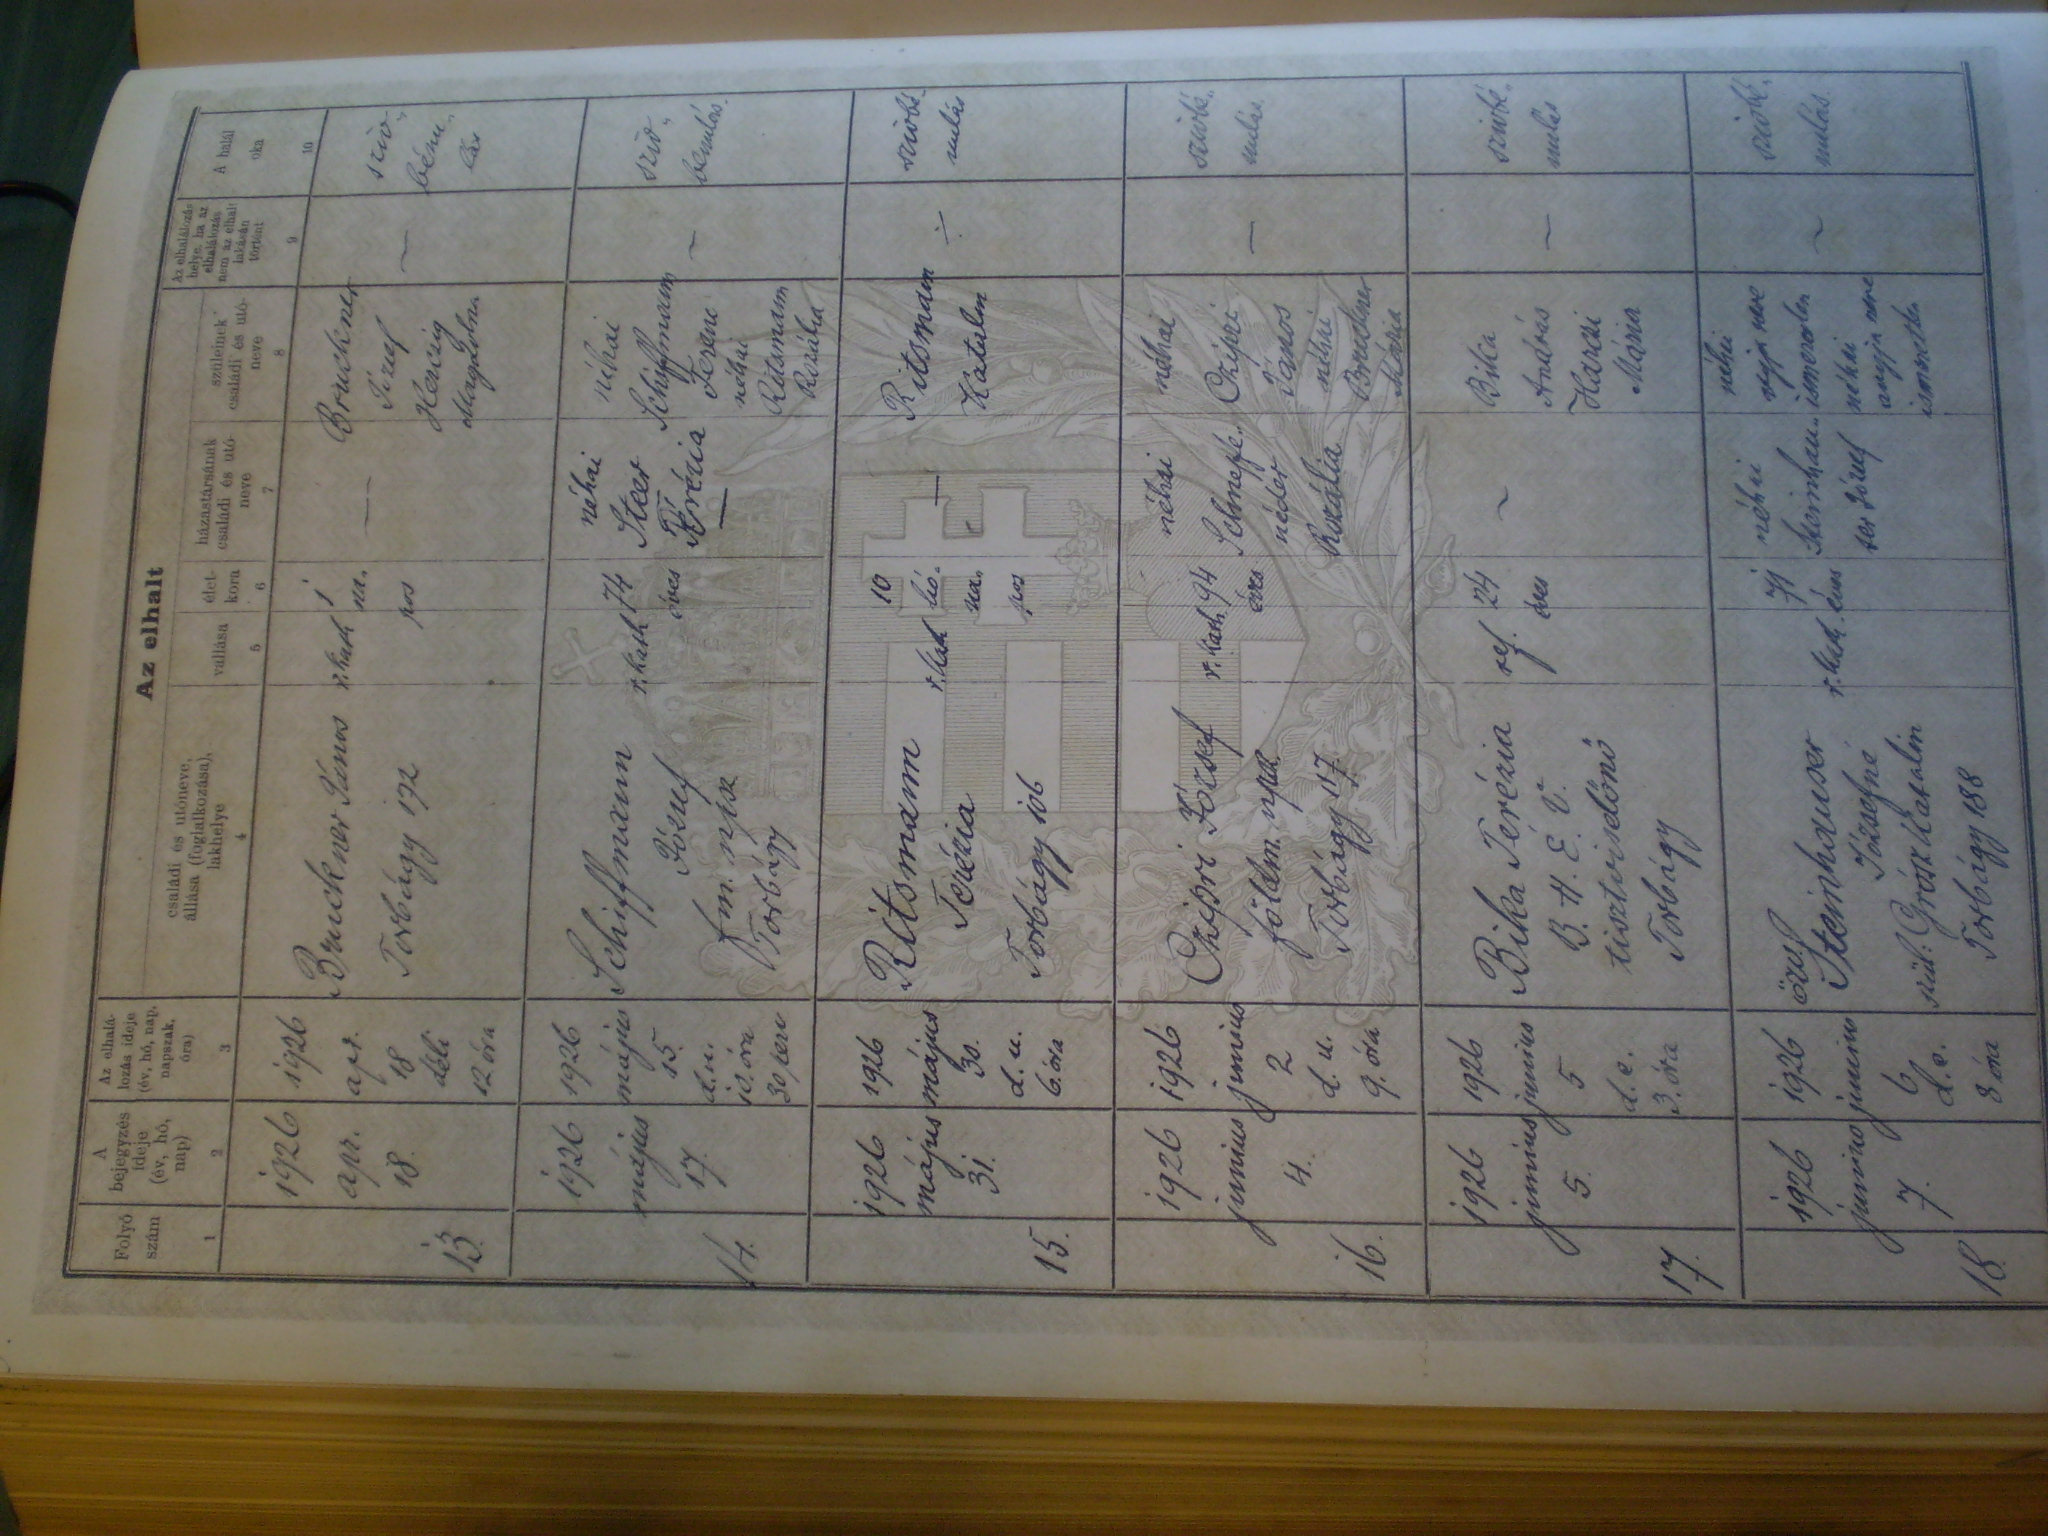 Az elhalt
Folyó
szám
A
bejegyzés
ideje
(év, hó,
nap)
Az elhalá-
lozás ideje
(év, hó, nap,
napszak,
óra)
családi és utóneve,
állása (foglalkozása),
lakhelye
vallása
élet-
kora
házastársának
családi és utó-
neve
szüleinek
családi és utó-
neve
Az elhalálozás
helye, ha az
elhalálozás
nem az elhalt
lakásán
történt
A halál
oka
1
2
3
4
5
6
7
8
9
10
13.
1926
apr.
18.
1926
apr.
18
déli
12 óra
Bruckner János
Torbágy 172
r. kath
1
na.
pos
—
Bruckner
József
Herczig
Magdolna
—
szív-
bénu-
lás
14.
1926
május
17.
1926
május
15.
d.u.
10. óra
30 perc
Schiffmann
József
fm. njsz
Torbágy
r. kath
74
éves
néhai
Steer
Terézia
—
néhai
Schiffmann
Ferenc
néhai
Ritsmann
Rozália
—
szív-
bénulás.
15.
1926
május
31.
1926
május
30.
d. u.
6. óra
Ritsmann
Terézia
Torbágy 106
r. kath
10
hó-
na-
pos
—
Ritsmann
Katalin
÷
szívbé-
nulás
16.
1926
junius
4.
1926
junius
2
d. u.
9. óra
Czipri József
földm. npsz.
Torbágy 117.
r. kath.
94
éves
néhai
Rozália
néhai
Czipri
János
néhai
Bruckner
Mária
—
szívbé-
nulás
17.
1926
junius
5.
1926
junius
5
d. e.
3. óra
Bika Terézia
B. H. É. V.
tisztviselőnő
Torbágy
ref.
24
éves
~
Bika
András
Karczi
Mária
~
szívbé-
nulás
18.
1926
junius
7.
1926
junius
6
d. e.
8 óra
özv.
Steinhauser
Józsefné
szül: Grósz Katalin
Torbágy 188
r. kath.
71
éves
néhai
Steinhau-
ser József
néhai
apja neve
ismeretlen
néhai
anyja neve
ismeretlen
~
szívbé-
nulás.